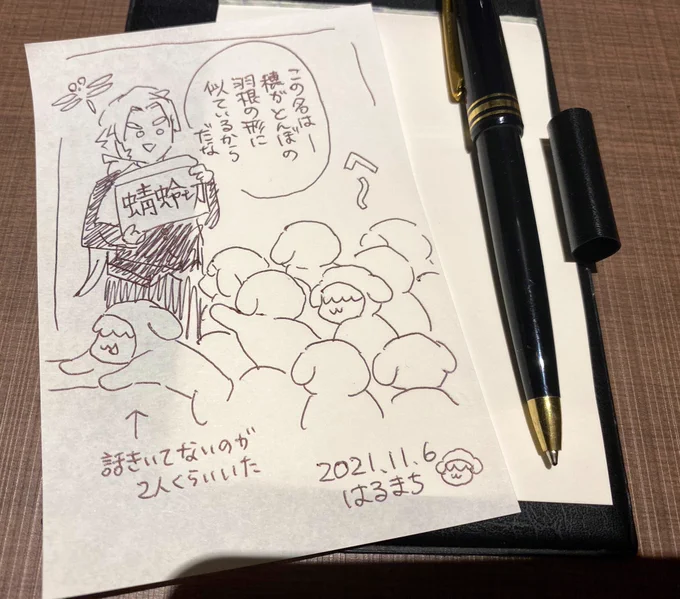 この名はー
穂がとんぼの
羽根の形に
似ているから
だな
蜻蛉切
へ〜
話きいてないのが
2人くらいいた
2021.11.6
はるまち